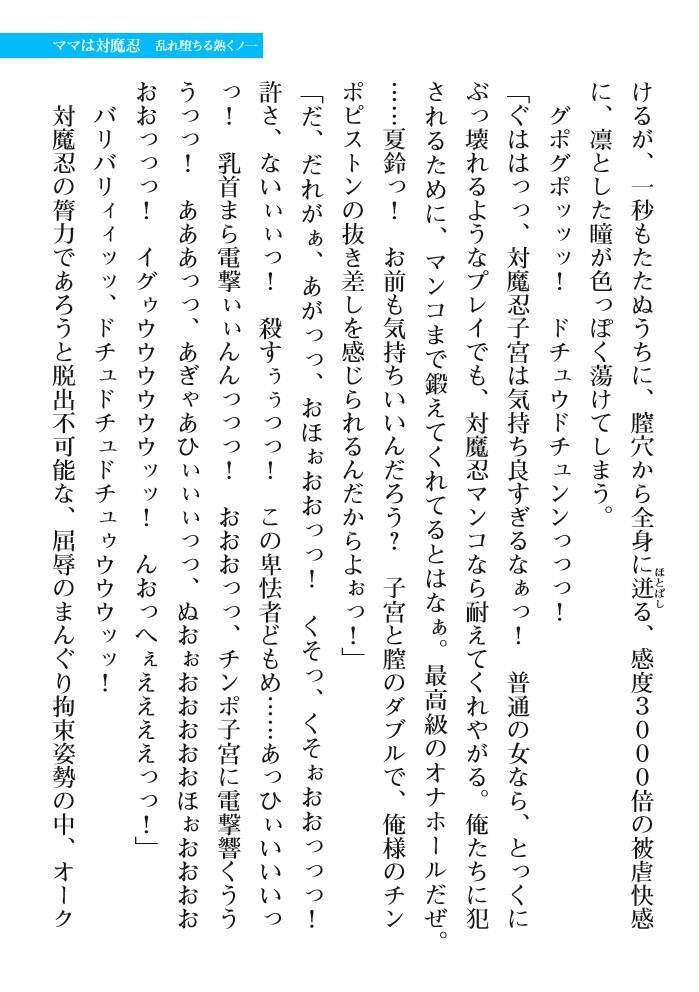 ママは対魔忍　乱れ堕ちる熟くノ一
けるが、一秒もたたぬうちに、膣穴から全身に迸る、感度３０００倍の被虐快感
ほとばし
に、凛とした瞳が色っぽく蕩けてしまう。
グポグポッッッ！　ドチュウドチュンンっっっ！
「ぐははっっ、対魔忍子宮は気持ち良すぎるなぁっ！　普通の女なら、とっくに
ぶっ壊れるようなプレイでも、対魔忍マンコなら耐えてくれやがる。俺たちに犯
されるために、マンコまで鍛えてくれてるとはなぁ。最高級のオナホールだぜ。
……夏鈴っ！　お前も気持ちいいんだろう？　子宮と膣のダブルで、俺様のチン
ポピストンの抜き差しを感じられるんだからよぉっ！」
「だ、だれがぁ、あがっっ、おほぉおおっっ！　くそっ、くそぉおおっっっ！
許さ、ないぃぃっ！　殺すぅぅっっ！　この卑怯者どもめ……あっひぃいいいっ
っ！　乳首まら電撃ぃぃんんっっっ！　おおおっっ、チンポ子宮に電撃響くうう
うっっ！　あああっっ、あぎゃあひぃぃぃっっ、ぬおぉおおおおおほぉおおおお
おおっっっ！　イグゥウウウウウウッッ！　んおっへぇええええっっ！」
バリバリィィッッ、ドチュドチュドチュゥウウウッッ！
対魔忍の膂力であろうと脱出不可能な、屈辱のまんぐり拘束姿勢の中、オーク